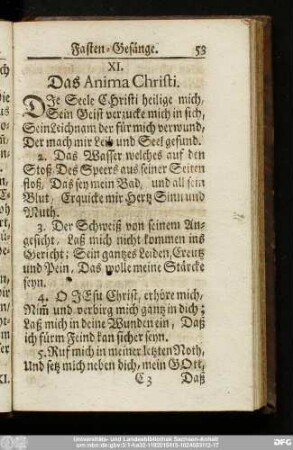 Fasten-Gesänge. 53
XI.
Das Anima Christi.
DIe Seele Christi heilige mich,
Sein Geist verzucke mich in sich,
Sein Leichnam der für mich verwund,
Der mach mir Leib und Seel gesund.
2. Das Wasser welches auf den
Stoß Des Speers aus seiner Seiten
floß, Das sey mein Bad, und all sein
Blut, Erquicke mir Hertz Sinn und
Muth.
3. Der Schweiß von seinem An-
gesicht, Laß mich nicht kommen ins
Gericht; Sein gantzes Leiden, Creutz
und Pein, Das wolle meine Stärcke
seyn.
4. O JEsu Christ, erhöre mich,
Nim̃ und verbirg mich gantz in dich;
Laß mich in deine Wunden ein, Daß
ich fürm Feind kan sicher seyn.
5. Ruf mich in meiner letzten Noth,
Und setz mich neben dich, mein GOtt,
C 3 Daß
Universitäts- und Landesbibliothek Sachsen-Anhalt
DFG